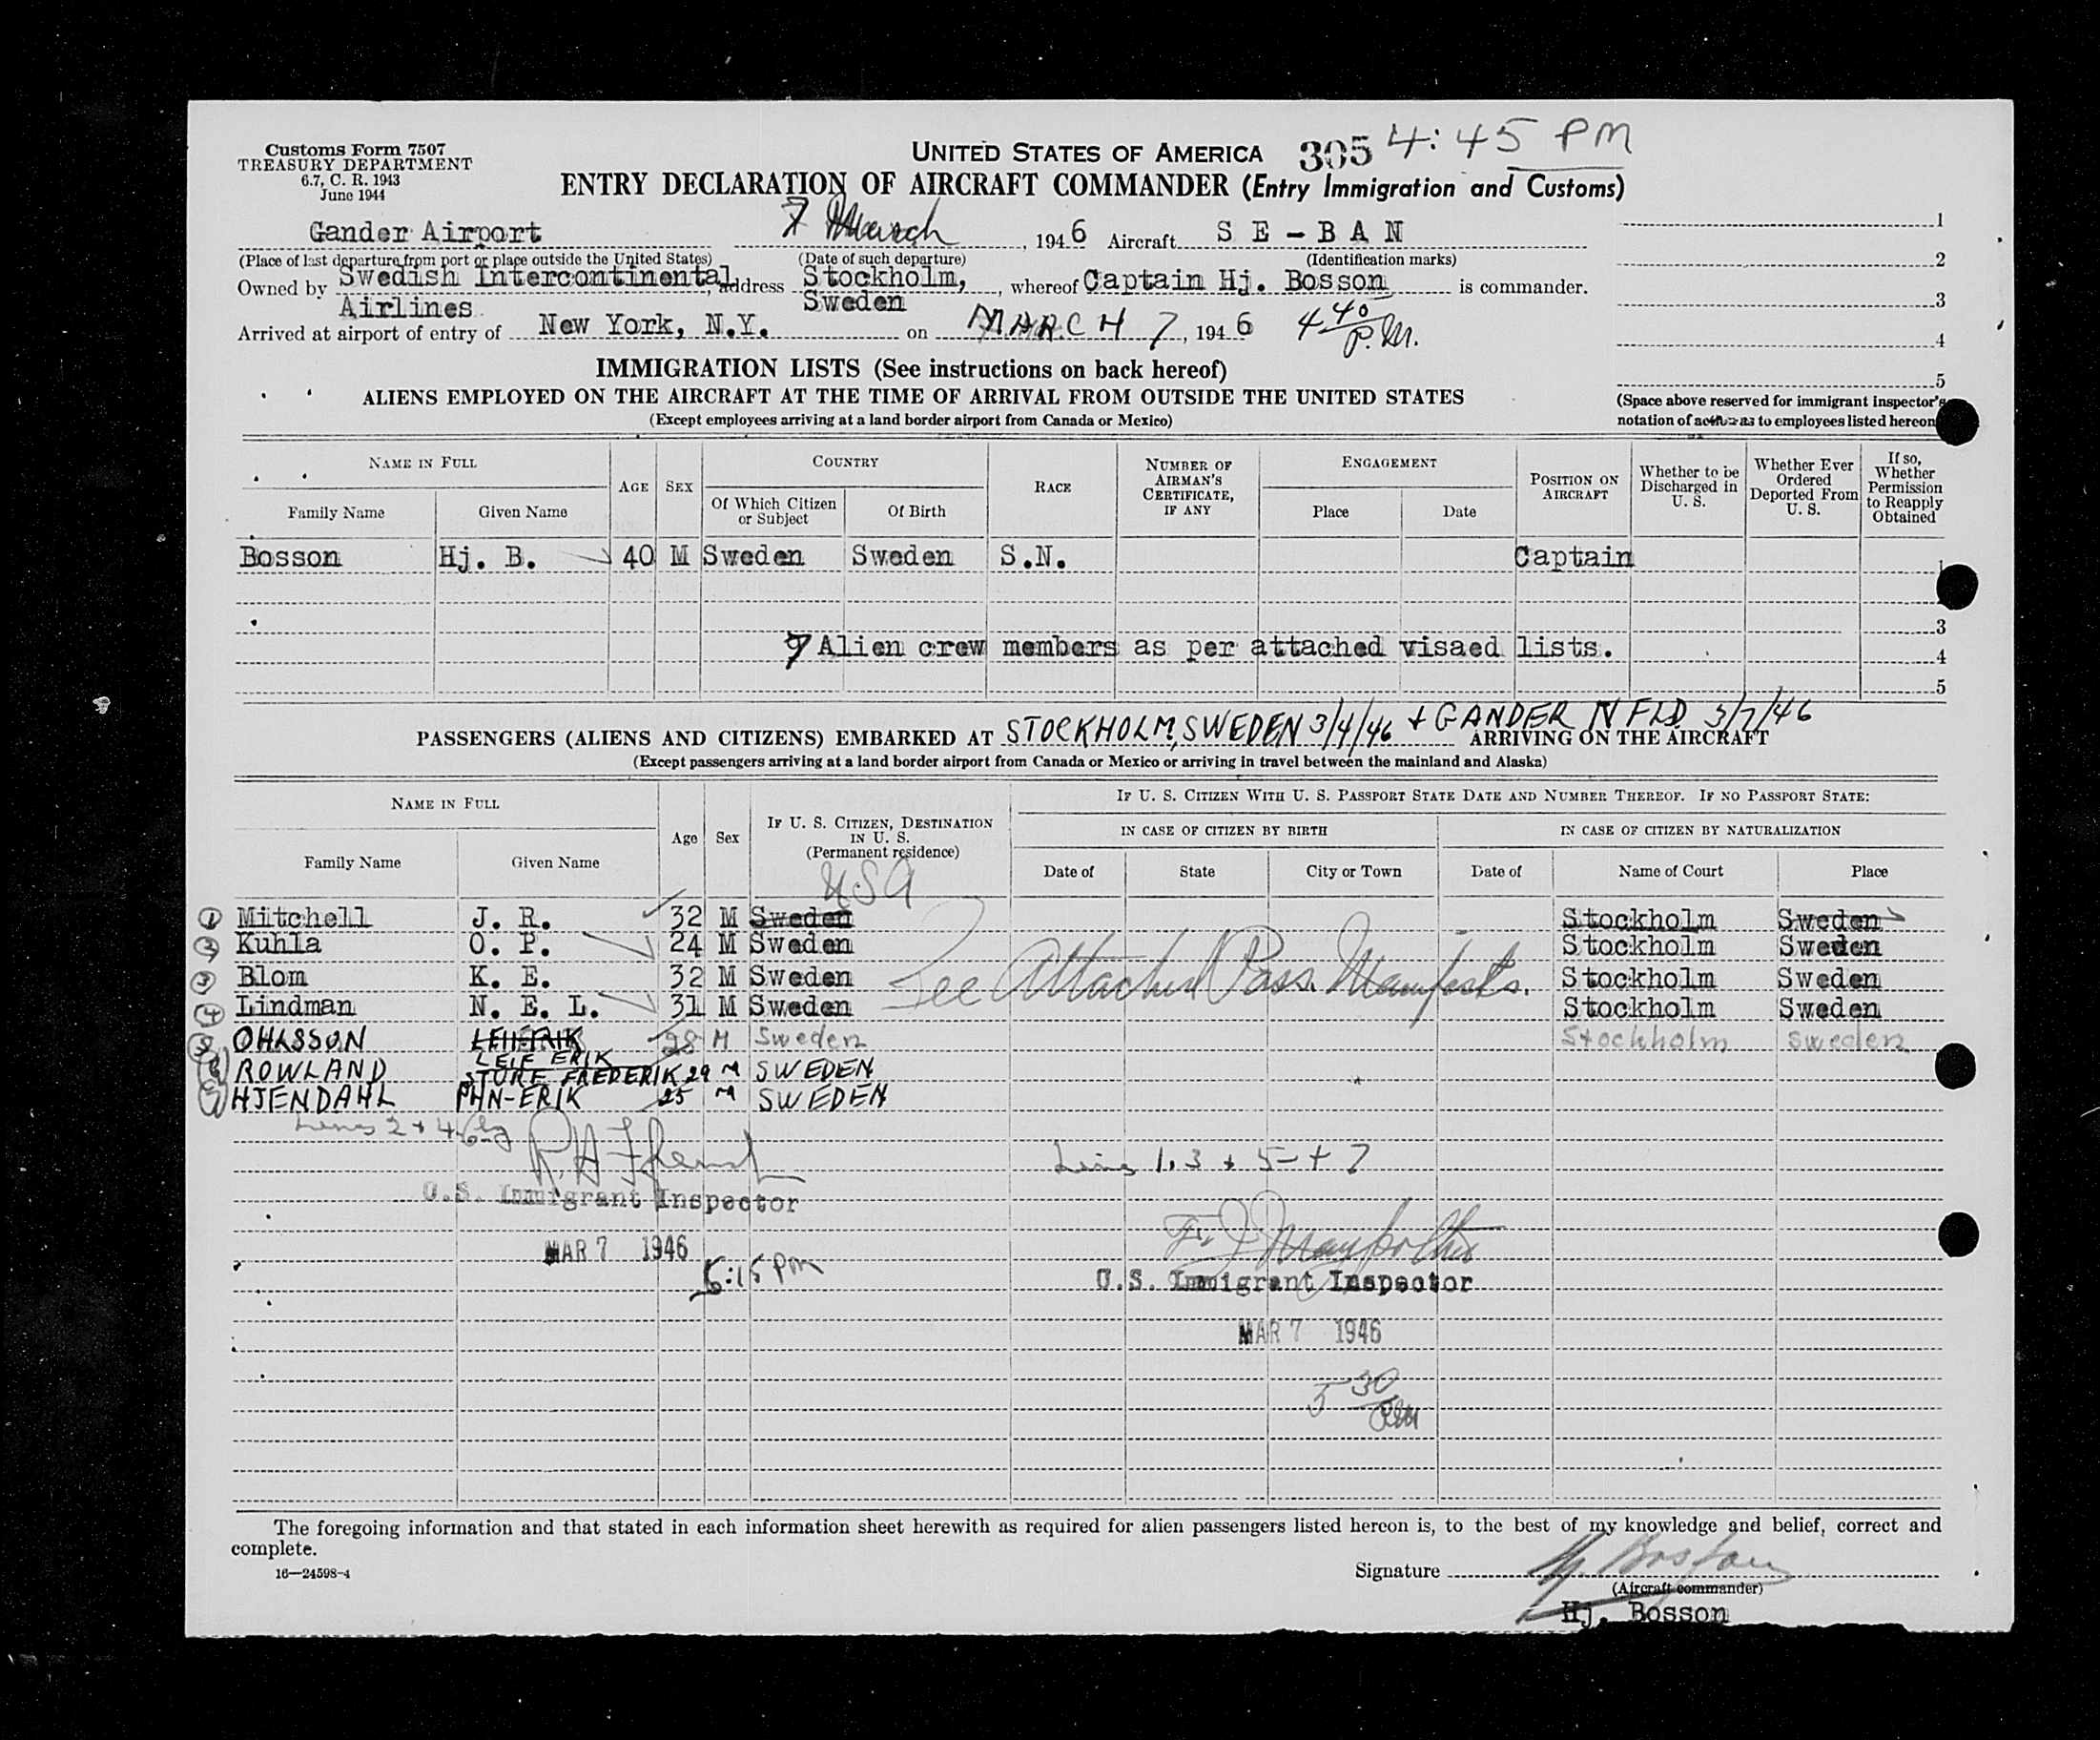 Customs Form 7507
TREASURY DEPARTMENT
6.7, C. R. 1943
June 1944
UNITED STATES OF AMERICA 305 4:45 PM
ENTRY DECLARATION OF AIRCRAFT COMMANDER (Entry Immigration and Customs)
Gander Airport 7 March, 1946 Aircraft SE-BAN
(Place of last departure from port or place outside the United States) (Date of such departure) (Identification marks)
Owned by Swedish Intercontinental Airlines, address Stockholm, Sweden, whereof Captain Hj. Bosson is commander.
Arrived at airport of entry of New York, N.Y. on MARCH 7, 1946 4 40 P.M.
1
2
3
4
5
(Space above reserved for immigrant inspector's
notation of action as to employees listed hereon
IMMIGRATION LISTS (See instructions on back hereof)
ALIENS EMPLOYED ON THE AIRCRAFT AT THE TIME OF ARRIVAL FROM OUTSIDE THE UNITED STATES
(Except employees arriving at a land border airport from Canada or Mexico)
NAME IN FULL
Family Name Given Name
AGE SEX
COUNTRY
Of Which Citizen or Subject Of Birth
RACE
NUMBER OF AIRMAN'S CERTIFICATE, IF ANY
ENGAGEMENT
Place Date
POSITION ON AIRCRAFT
Whether to be Discharged in U. S.
Whether Ever Ordered Deported From U. S.
If so, Whether Permission to Reapply Obtained
Bosson Hj. B. 40 M Sweden Sweden S.N. Captain 1
3
9 Alien crew members as per attached visaed lists.
4
5
PASSENGERS (ALIENS AND CITIZENS) EMBARKED AT STOCKHOLM, SWEDEN 3/4/46 + GANDER NFLD 3/7/46 ARRIVING ON THE AIRCRAFT
(Except passengers arriving at a land border airport from Canada or Mexico or arriving in travel between the mainland and Alaska)
NAME IN FULL
Family Name Given Name
Age Sex
IF U. S. CITIZEN, DESTINATION IN U. S. (Permanent residence)
IF U. S. CITIZEN WITH U. S. PASSPORT STATE DATE AND NUMBER THEREOF. IF NO PASSPORT STATE:
IN CASE OF CITIZEN BY BIRTH
Date of State City or Town
IN CASE OF CITIZEN BY NATURALIZATION
Date of Name of Court Place
USA
1 Mitchell J. R. 32 M Sweden Stockholm Sweden
2 Kuhla O. P. 24 M Sweden Stockholm Sweden
3 Blom K. E. 32 M Sweden See Attached Pass. Manifests. Stockholm Sweden
4 Lindman N. E. L. 31 M Sweden Stockholm Sweden
5 OHLSSON LEIF ERIK 28 M Sweden Stockholm Sweden
6 ROWLAND STURE FREDERIK 29 M SWEDEN
7 HJENDAHL PHN-ERIK 25 M SWEDEN
Lines 2 + 4, 6 by
U.S. Immigrant Inspector
MAR 7 1946
5:15 PM
Lines 1, 3 + 5 + 7
U.S. Immigrant Inspector
MAR 7 1946
5 30 PM
The foregoing information and that stated in each information sheet herewith as required for alien passengers listed hereon is, to the best of my knowledge and belief, correct and
complete.
16—24598-4
Signature Hj. Bosson
(Aircraft commander)
Hj. Bosson